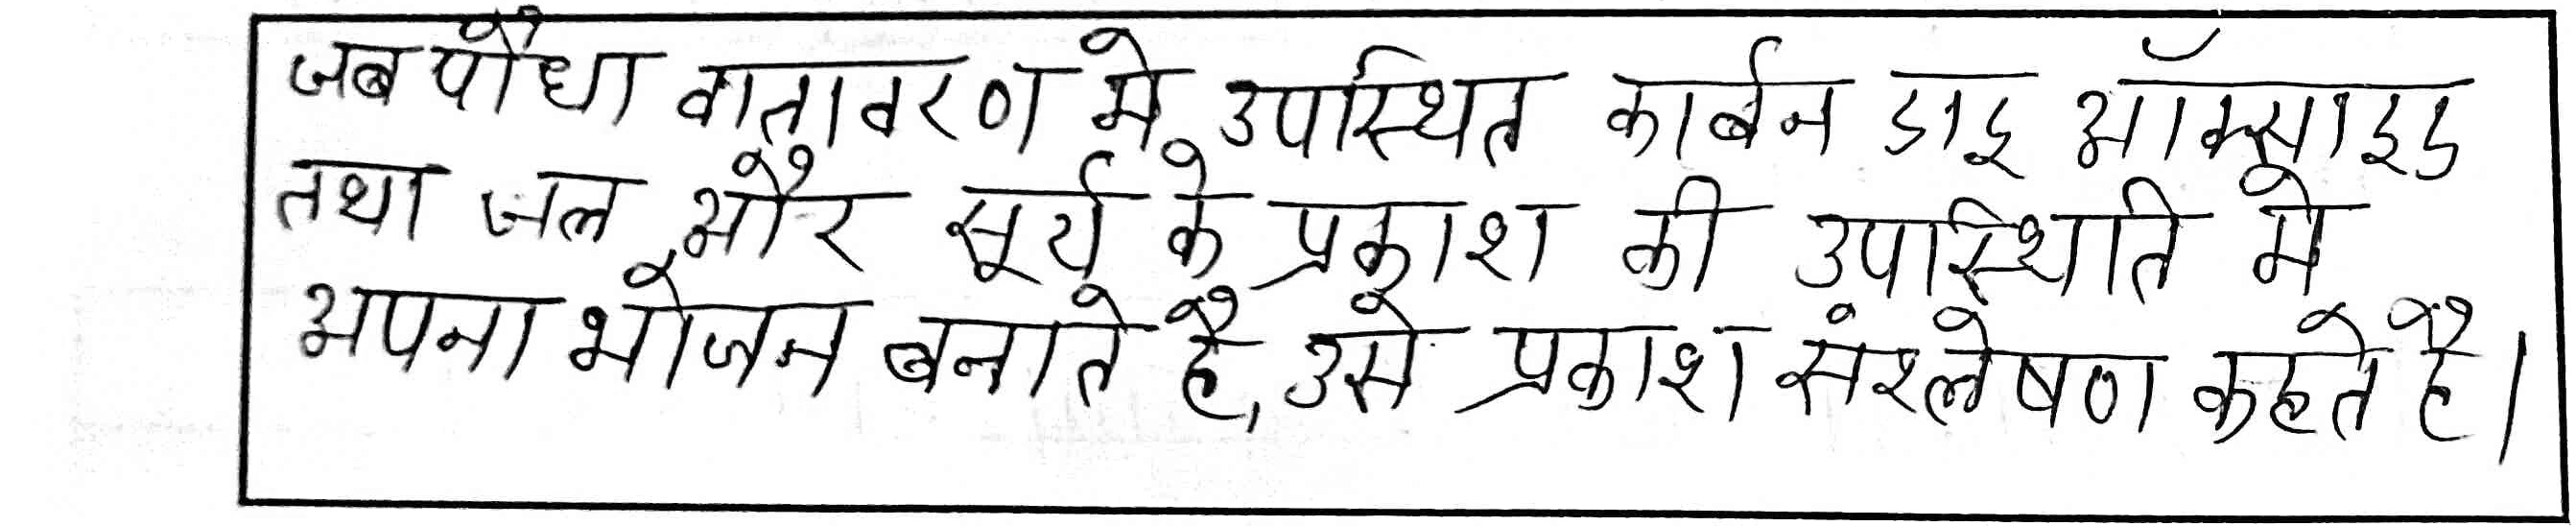 जब पौधा वातावरण मे उपस्थित कार्बन डाइ ऑक्साइड
तथा जल और सूर्य के प्रकाश की उपस्थिति मे
अपना भोजन बनाते है, उसे प्रकाश संश्लेषण कहते है।